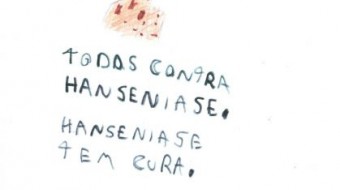 TODAS CONTRA
HANSENIASE.
HANSENIASE
TEM CURA.